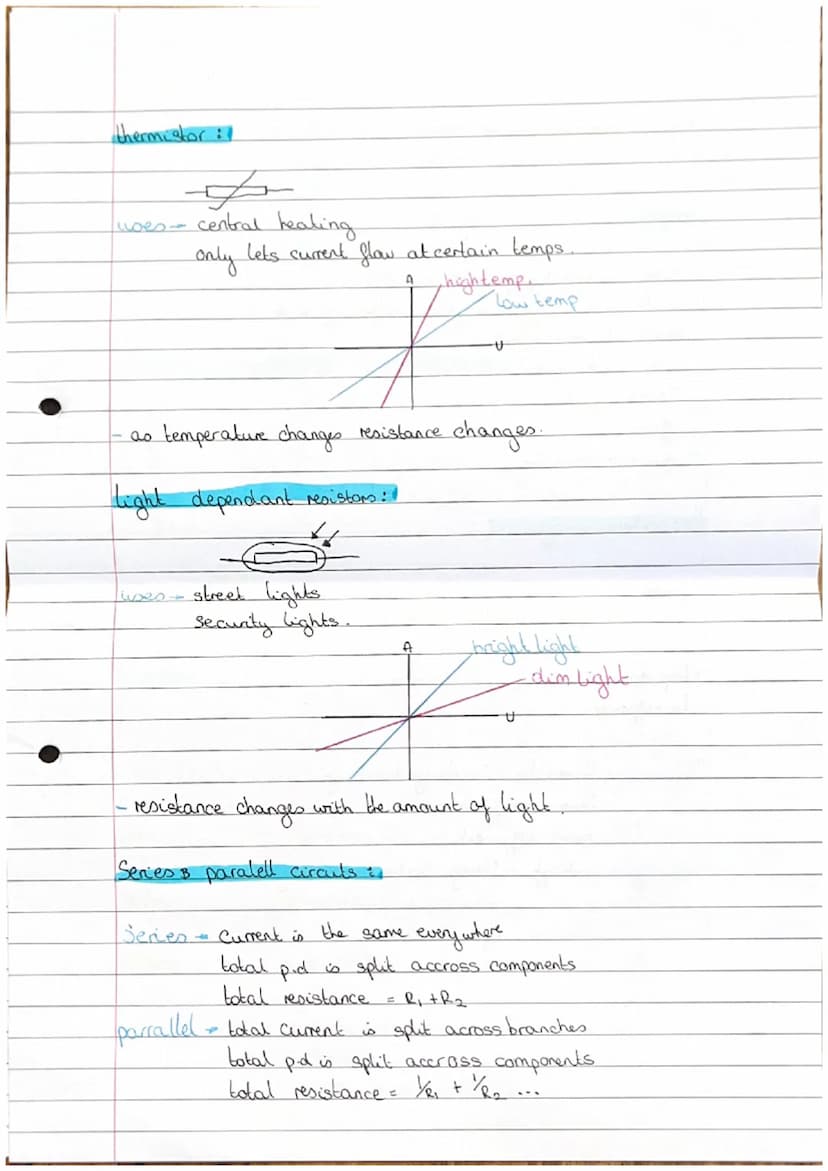 thermistor :
uses - central heating
only lets current flow at certain temps.
A
high temp.
low temp
V
- as temperature changes resistance changes.
light dependant resistors :
uses - street lights
security lights.
A
bright light
dim light
V
- resistance changes with the amount of light.
Series & paralell circuits :
Series - Current is the same everywhere
total p.d is split accross components
total resistance = R₁ + R₂
parrallel - total current is split across branches
total p.d is split accross components
total resistance = 1/R₁ + 1/R₂ ...